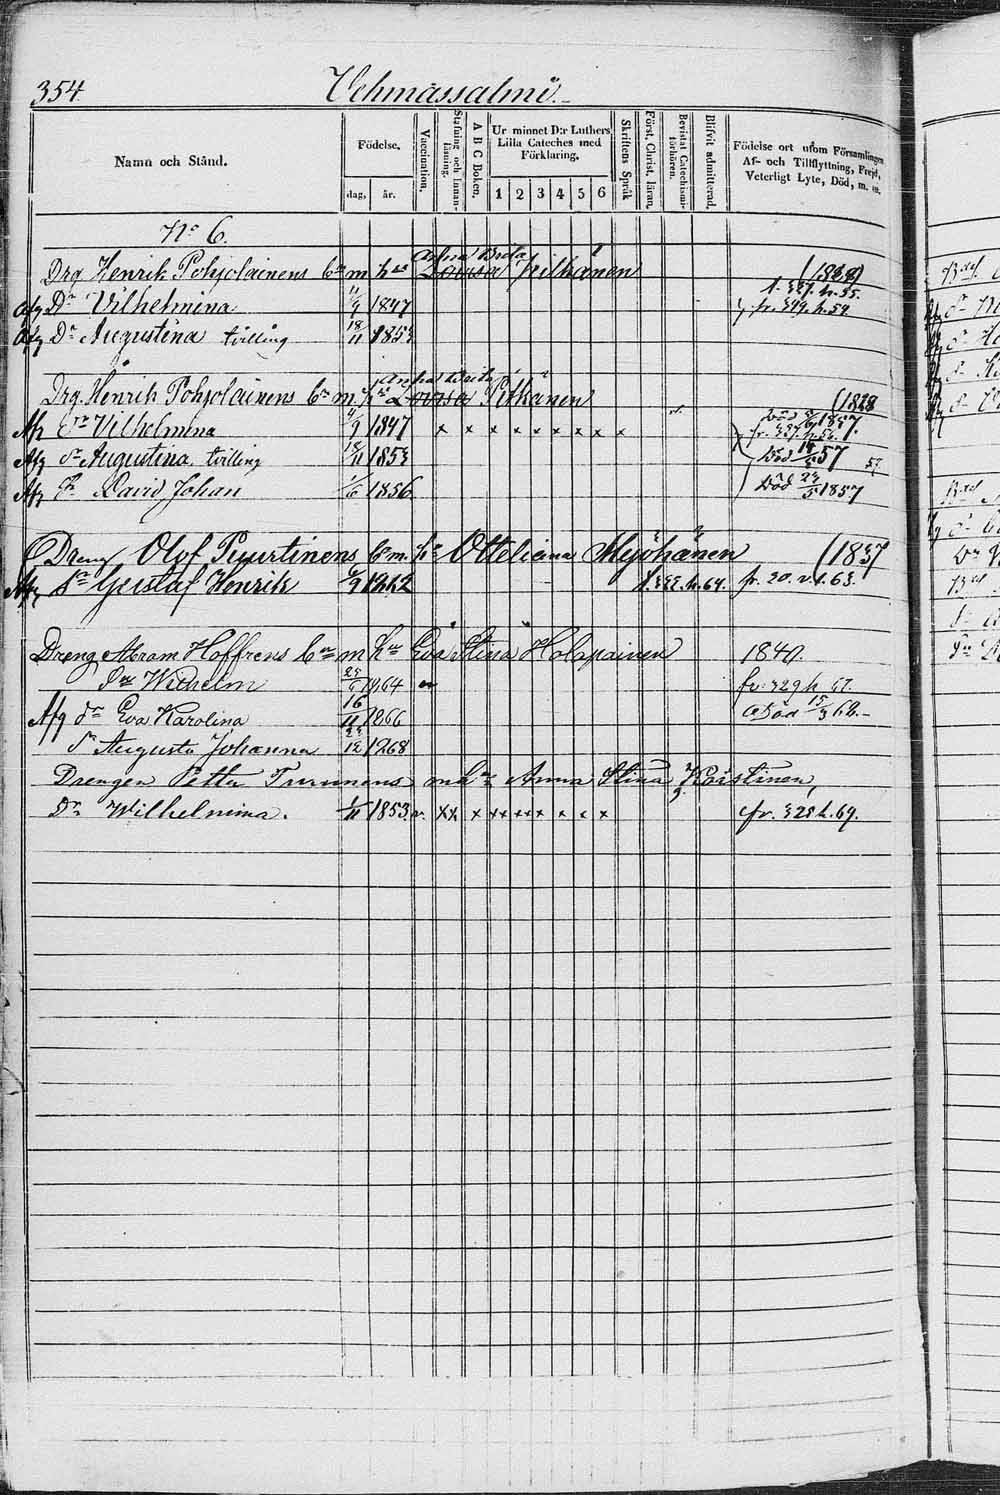 354.
Vehmassalmi.
Namn och Stånd.
Födelse,
dag, år.
Vaccination.
Stafning och Innanläsning.
A B C Boken.
Ur minnet D:r Luthers Lilla Cateches med Förklaring,
1 2 3 4 5 6
Skriftens Språk
Först. Christ. läran.
Bevistat Catechismiförhören.
Blifvit admitterad.
Födelse ort utom Församlingen Af- och Tillflyttning, Frejd, Veterligt Lyte, Död, m. m.
No 6.
Anna Brita
Drg Henrik Pohjolainens bn m hu Lovisa Pitkänen
Afg Dr Vilhelmina 11/9 1847 fr. 349. h. 59.
Afg Dr Augustina tvilling 18/11 1853
Anna Brita
Drg. Henrik Pohjolainens bn m. hu Lovisa Pitkänen (1828
Afg Dr Vilhelmina 11/9 1847 x x x x x x x x x
Afg Dr Augustina, tvilling 18/11 1853 Död 57
Afg Sn David Johan 1/6 1856 Död 23/5 1857
Dreng Olof Puurtinens bn m. hu Otteliana Myöhänen (1837
Afg Sn Gustaf Henrik 1862 fr. 20. v. 1. 63.
Dreng Abram Hoffrens bn m hu Eva Stina Holapainen 1840.
Sn Wilhelm 1864 fr. 329 h 67.
Afg dr Eva Karolina 16/11 1866 död 15/3 68.
dr Augusta Johanna 1868
Drengen Petter Turunens m hu Anna Stina Koistinen,
Dr Wilhelmina. 1/11 1853 v. xx x xxxx x x x fr. 328 h. 69.